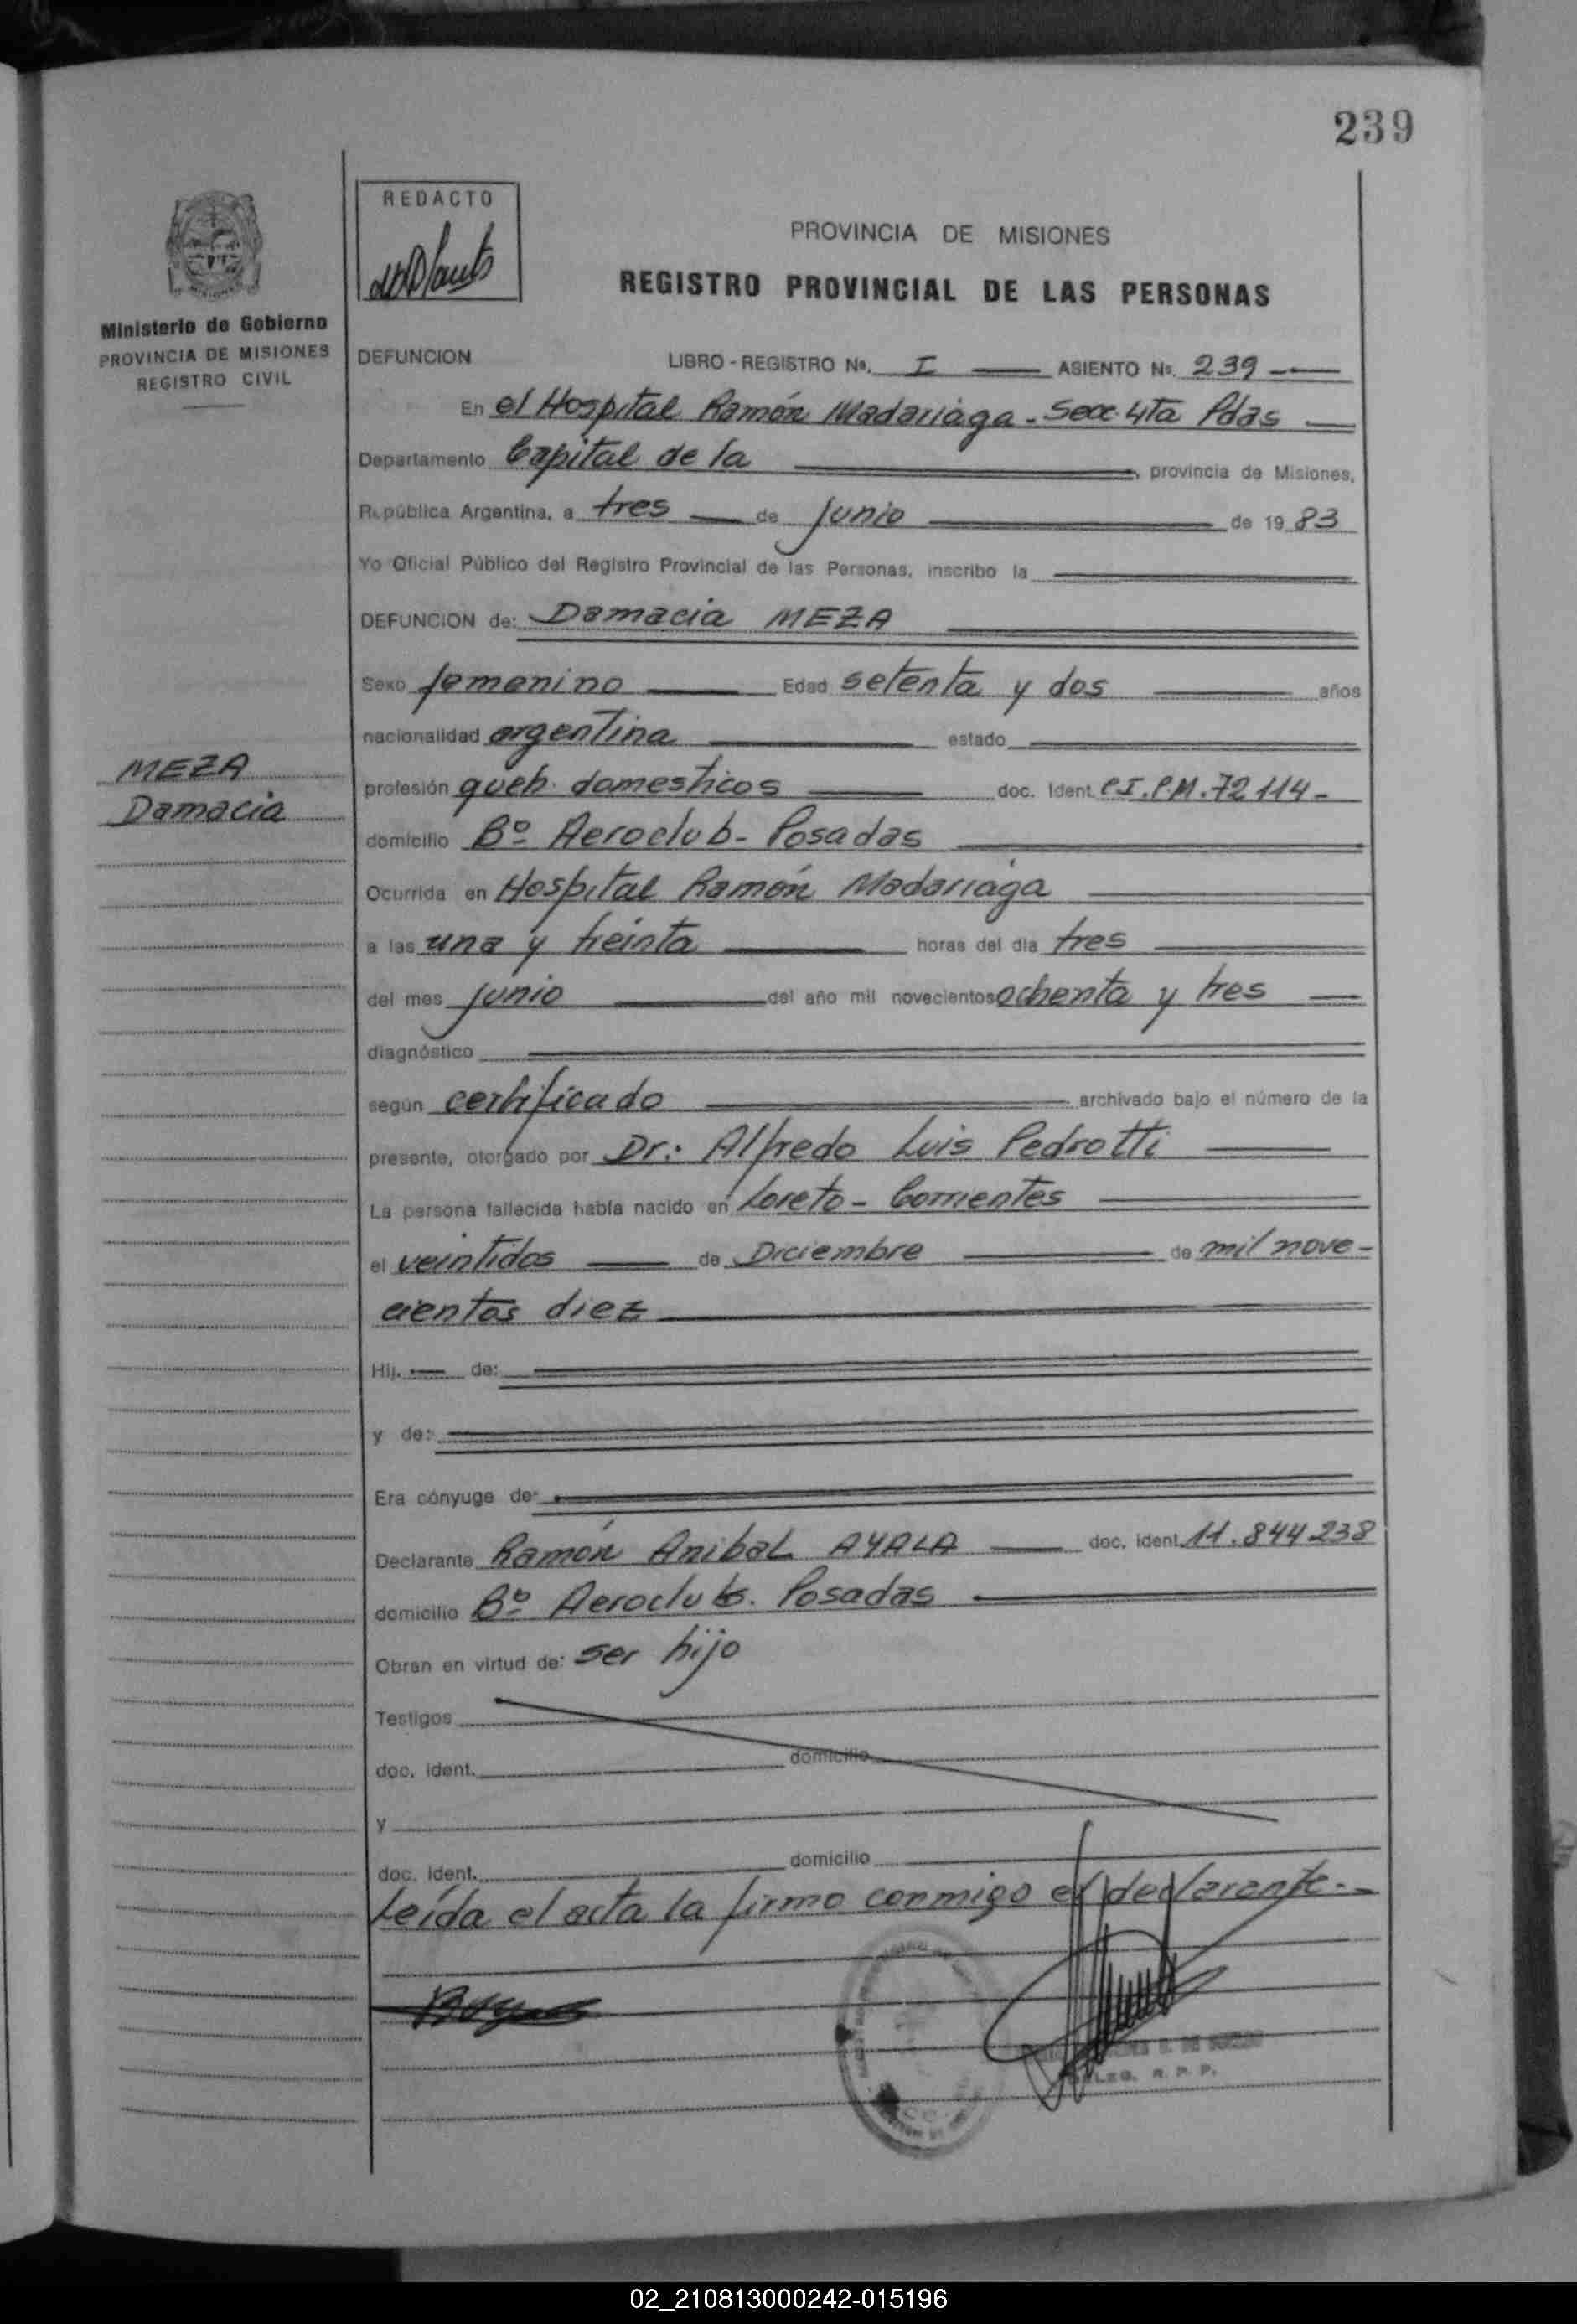 239
REDACTO
PROVINCIA DE MISIONES
REGISTRO PROVINCIAL DE LAS PERSONAS
Ministerio de Gobierno
PROVINCIA DE MISIONES
REGISTRO CIVIL
DEFUNCION LIBRO - REGISTRO No. I ASIENTO No. 239
En el Hospital Ramón Madariaga - Secc. 4ta Pdas
Departamento Capital de la , provincia de Misiones,
República Argentina, a tres de junio de 1983
Yo Oficial Público del Registro Provincial de las Personas, inscribo la
DEFUNCION de: Damacia MEZA
Sexo femenino Edad setenta y dos años
nacionalidad argentina estado
MEZA
Damacia
profesión queh. domesticos doc. Ident. C.I.P.M. 72114-
domicilio Bº Aeroclub - Posadas
Ocurrida en Hospital Ramón Madariaga
a las una y treinta horas del día tres
del mes junio del año mil novecientos ochenta y tres
diagnóstico
según certificado archivado bajo el número de la
presente, otorgado por Dr: Alfredo Luis Pedrotti
La persona fallecida había nacido en Loreto - Corrientes
el veintidos de Diciembre de mil nove-
cientos diez
Hij. de:
y de:
Era cónyuge de:
Declarante Ramón Anibal AYALA doc. ident. 11.844238
domicilio Bº Aeroclub. Posadas
Obran en virtud de: ser hijo
Testigos
doc. ident. domicilio
y
doc. ident. domicilio
Leída el acta la firma conmigo el declarante.-
R. P. P.
02_210813000242-015196